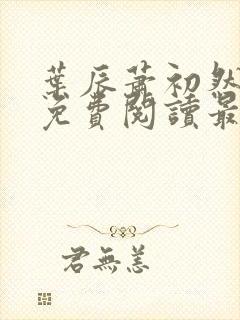 葉辰蕭初然
免費閱讀最
君無恙